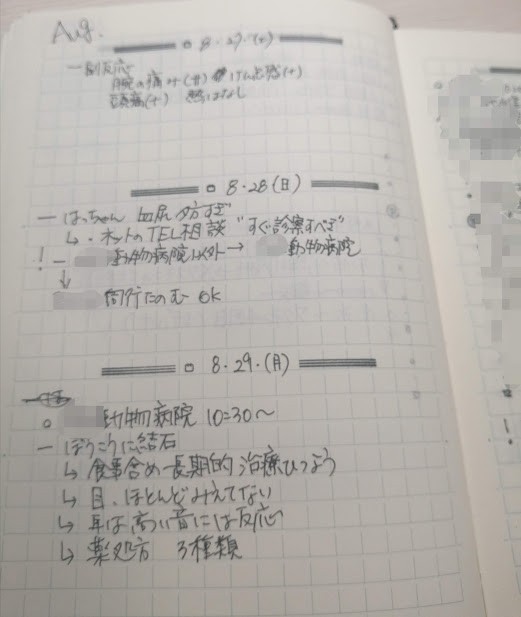 Aug.
8・27・(土)
ー副反応
腕の痛み(廿) けん怠感(+)
頭痛(+) 熱はなし
8・28(日)
ー はっちゃん 血尿 夕方すぎ
↳・ネットのTEL相談 "すぐ診察すべき"
! ー 動物病院以外→ 動物病院
↓
同行たのむ OK
8・29・(月)
○ 動物病院 10:30〜
ー ぼうこうに結石
↳ 食事含め長期的治療ひつよう
↳ 目、ほとんどみえてない
↳ 耳は高い音には反応
↳ 薬処方 3種類